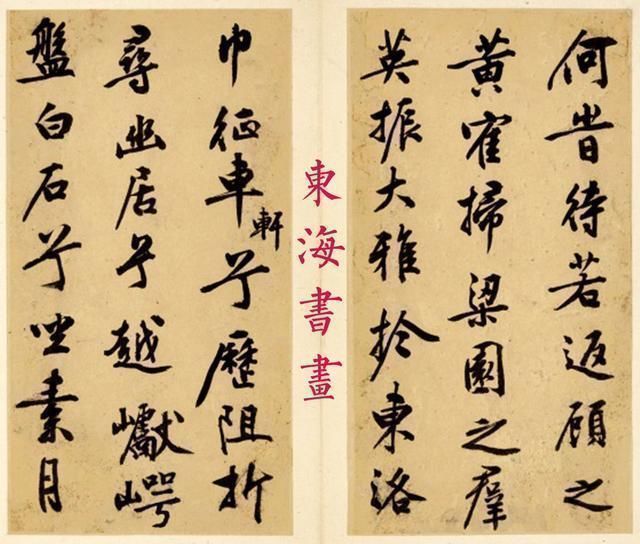 何昔待若返顧之
黃寉掃梁園之羣
英振大雅扵東洛
東海書畫
巾征車軒兮歷阻折
尋幽居兮越巘崿
盤白石兮坐素月